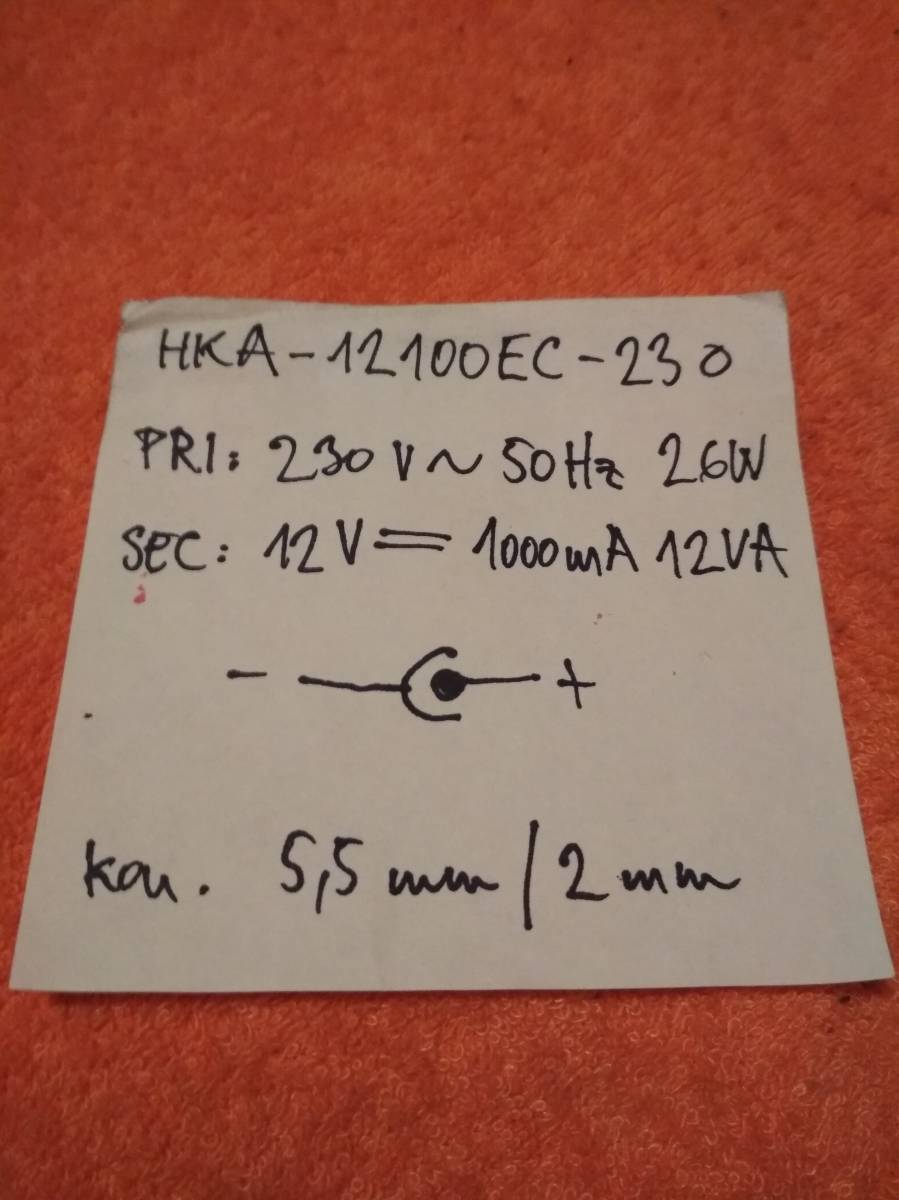 HKA-12100EC-230
PRI: 230V~ 50Hz 26W
SEC: 12V= 1000mA 12VA
- +
kon. 5,5 mm/2 mm